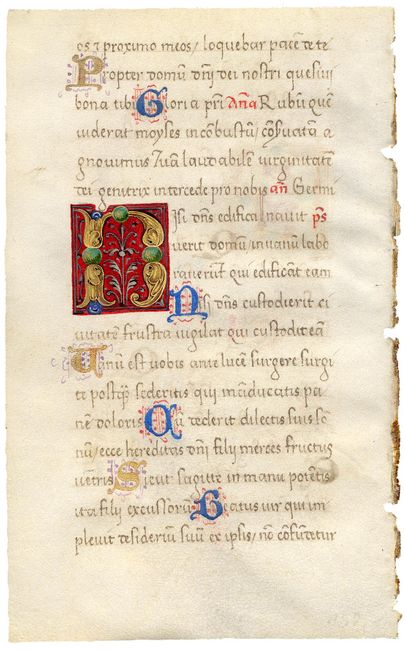 os ⁊ proximo meos / loquebar pacē de te
Propter domū dñi dei nostri quesiui
bona tibi Gloria pr̄i Añā Rubū quē
uiderat moyses incōbustū / cōseruatā a
gnouimus tuā laudabilē uirginitatē
dei genitrix intercede pro nobis añ Germi
Nisi dñs edifica nauit ps
uerit domū in uanū labo
rauerūt qui edificāt eam
Nisi dñs custodierit ci
uitatē frustra uigilat qui custodit eā
Uanū est uobis ante lucē surgere surgi
te postq̄ sederitis qui māducatis pa
nē doloris Cū dederit dilectis suis sō
nū / ecce hereditas dñi filii merces fructus
uentris Sicut sagitte in manu potētis
ita filii excussorū Beatus uir qui im
pleuit desideriū suū ex ipsis / nō cōfūdetur